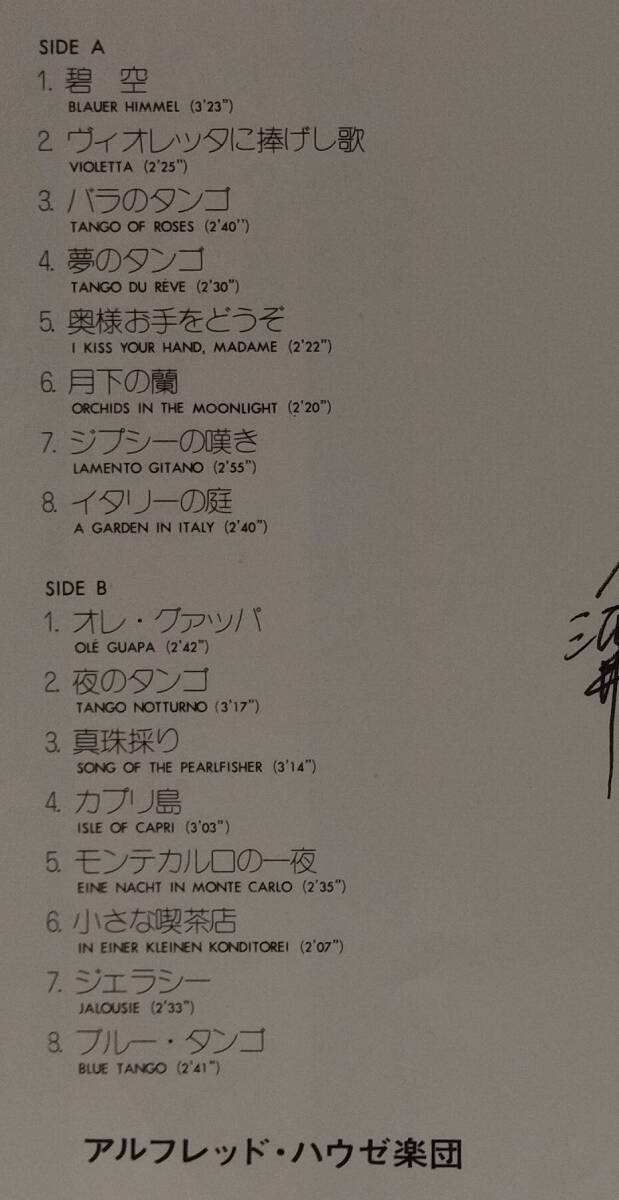 SIDE A
1. 碧 空
BLAUER HIMMEL (3'23")
2. ヴィオレッタに捧げし歌
VIOLETTA (2'25")
3. バラのタンゴ
TANGO OF ROSES (2'40'')
4. 夢のタンゴ
TANGO DU RÊVE (2'30")
5. 奥様お手をどうぞ
I KISS YOUR HAND, MADAME (2'22")
6. 月下の蘭
ORCHIDS IN THE MOONLIGHT (2'20")
7. ジプシーの嘆き
LAMENTO GITANO (2'55")
8. イタリーの庭
A GARDEN IN ITALY (2'40")
SIDE B
1. オレ・グァッパ
OLÉ GUAPA (2'42")
2. 夜のタンゴ
TANGO NOTTURNO (3'17")
3. 真珠採り
SONG OF THE PEARLFISHER (3'14")
4. カプリ島
ISLE OF CAPRI (3'03")
5. モンテカルロの一夜
EINE NACHT IN MONTE CARLO (2'35")
6. 小さな喫茶店
IN EINER KLEINEN KONDITOREI (2'07")
7. ジェラシー
JALOUSIE (2'33")
8. ブルー・タンゴ
BLUE TANGO (2'41")
アルフレッド・ハウゼ楽団